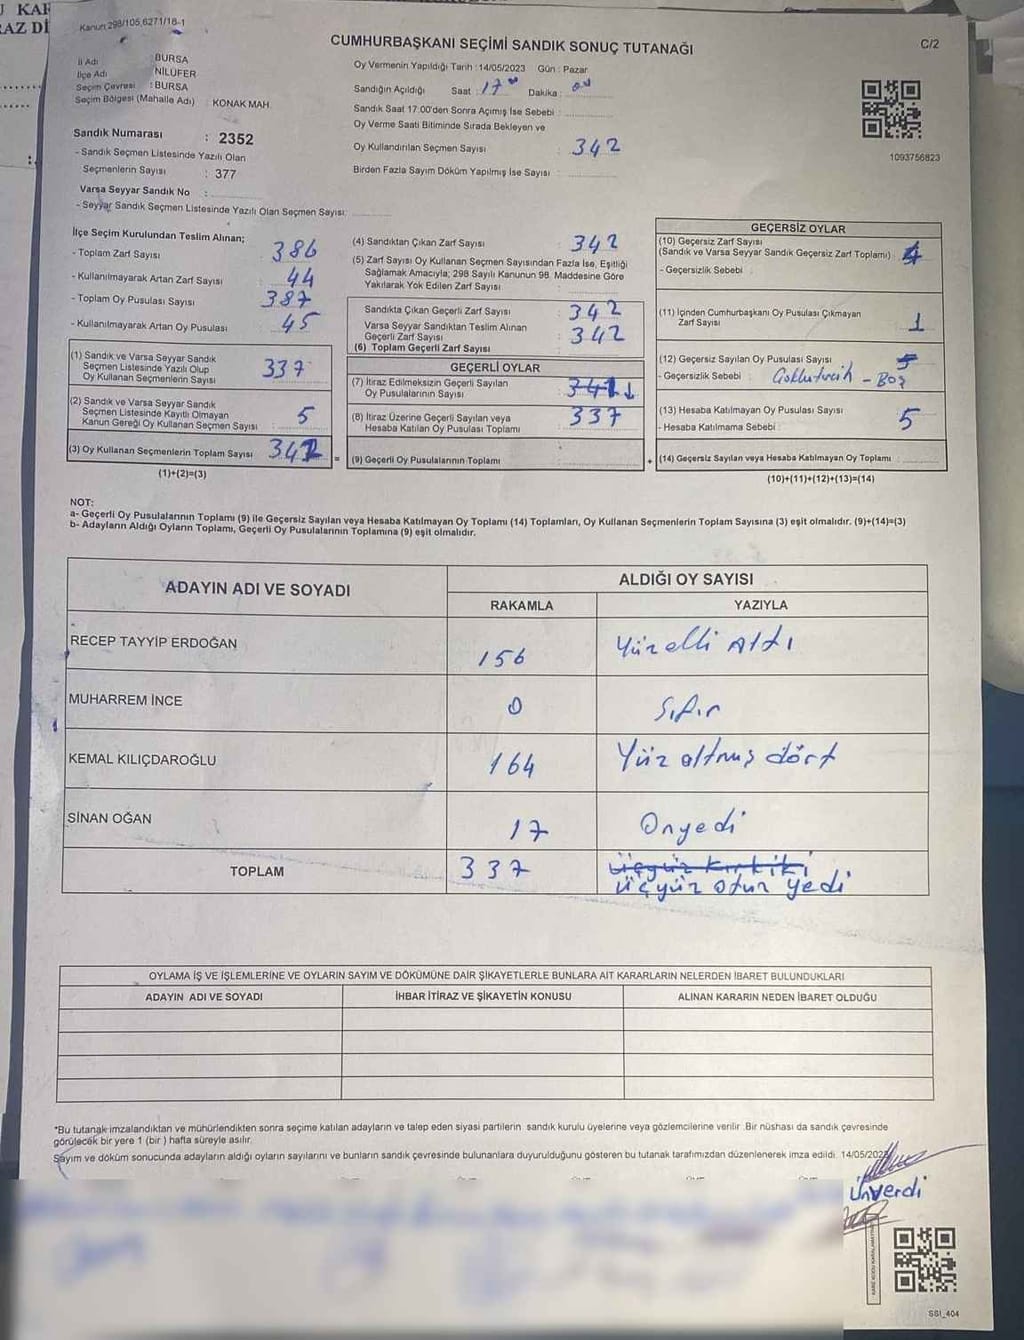 U KAR
RAZ Dİ
Kanun 298/105,6271/18-1
C/2
CUMHURBAŞKANI SEÇİMİ SANDIK SONUÇ TUTANAĞI
İl Adı : BURSA
İlçe Adı : NİLÜFER
Seçim Çevresi : BURSA
Seçim Bölgesi (Mahalle Adı) : KONAK MAH.
Oy Vermenin Yapıldığı Tarih :14/05/2023 Gün : Pazar
Sandığın Açıldığı Saat : 17 Dakika :
Sandık Saat 17:00'den Sonra Açımış İse Sebebi :
Oy Verme Saati Bitiminde Sırada Bekleyen ve
Oy Kullandırılan Seçmen Sayısı : 342
Birden Fazla Sayım Döküm Yapılmış İse Sayısı :
1093756823
Sandık Numarası : 2352
- Sandık Seçmen Listesinde Yazılı Olan
Seçmenlerin Sayısı : 377
Varsa Seyyar Sandık No :
- Seyyar Sandık Seçmen Listesinde Yazılı Olan Seçmen Sayısı:
İlçe Seçim Kurulundan Teslim Alınan;
- Toplam Zarf Sayısı : 386
- Kullanılmayarak Artan Zarf Sayısı : 44
- Toplam Oy Pusulası Sayısı : 387
- Kullanılmayarak Artan Oy Pusulası : 45
(1) Sandık ve Varsa Seyyar Sandık
Seçmen Listesinde Yazılı Olup
Oy Kullanan Seçmenlerin Sayısı : 337
(2) Sandık ve Varsa Seyyar Sandık
Seçmen Listesinde Kayıtlı Olmayan
Kanun Gereği Oy Kullanan Seçmen Sayısı : 5
(3) Oy Kullanan Seçmenlerin Toplam Sayısı : 342 =
(1)+(2)=(3)
(4) Sandıktan Çıkan Zarf Sayısı : 342
(5) Zarf Sayısı Oy Kullanan Seçmen Sayısından Fazla İse, Eşitliği
Sağlamak Amacıyla; 298 Sayılı Kanunun 98. Maddesine Göre
Yakılarak Yok Edilen Zarf Sayısı :
Sandıkta Çıkan Geçerli Zarf Sayısı : 342
Varsa Seyyar Sandıktan Teslim Alınan
Geçerli Zarf Sayısı : 342
(6) Toplam Geçerli Zarf Sayısı
GEÇERLİ OYLAR
(7) İtiraz Edilmeksizin Geçerli Sayılan
Oy Pusulalarının Sayısı : 341
(8) İtiraz Üzerine Geçerli Sayılan veya
Hesaba Katılan Oy Pusulası Toplamı : 337
(9) Geçerli Oy Pusulalarının Toplamı : +
GEÇERSİZ OYLAR
(10) Geçersiz Zarf Sayısı
(Sandık ve Varsa Seyyar Sandık Geçersiz Zarf Toplamı) :
- Geçersizlik Sebebi :
(11) İçinden Cumhurbaşkanı Oy Pusulası Çıkmayan
Zarf Sayısı : 1
(12) Geçersiz Sayılan Oy Pusulası Sayısı : 5
- Geçersizlik Sebebi : - Boş
(13) Hesaba Katılmayan Oy Pusulası Sayısı : 5
- Hesaba Katılmama Sebebi :
(14) Geçersiz Sayılan veya Hesaba Katılmayan Oy Toplamı :
(10)+(11)+(12)+(13)=(14)
NOT:
a- Geçerli Oy Pusulalarının Toplamı (9) ile Geçersiz Sayılan veya Hesaba Katılmayan Oy Toplamı (14) Toplamları, Oy Kullanan Seçmenlerin Toplam Sayısına (3) eşit olmalıdır. (9)+(14)=(3)
b- Adayların Aldığı Oyların Toplamı, Geçerli Oy Pusulalarının Toplamına (9) eşit olmalıdır.
ADAYIN ADI VE SOYADI ALDIĞI OY SAYISI
RAKAMLA YAZIYLA
RECEP TAYYİP ERDOĞAN 156 Yüzelli Altı
MUHARREM İNCE 0 Sıfır
KEMAL KILIÇDAROĞLU 164 Yüz altmış dört
SİNAN OĞAN 17 Onyedi
TOPLAM 337 Üçyüz kırkiki
Üçyüz otuz yedi
OYLAMA İŞ VE İŞLEMLERİNE VE OYLARIN SAYIM VE DÖKÜMÜNE DAİR ŞİKAYETLERLE BUNLARA AİT KARARLARIN NELERDEN İBARET BULUNDUKLARI
ADAYIN ADI VE SOYADI İHBAR İTİRAZ VE ŞİKAYETİN KONUSU ALINAN KARARIN NEDEN İBARET OLDUĞU
*Bu tutanak imzalandıktan ve mühürlendikten sonra seçime katılan adayların ve talep eden siyasi partilerin sandık kurulu üyelerine veya gözlemcilerine verilir .Bir nüshası da sandık çevresinde
görülecek bir yere 1 (bir ) hafta süreyle asılır.
Sayım ve döküm sonucunda adayların aldığı oyların sayılarını ve bunların sandık çevresinde bulunanlara duyurulduğunu gösteren bu tutanak tarafımızdan düzenlenerek imza edildi. 14/05/2023
Ünverdi
SSI_404